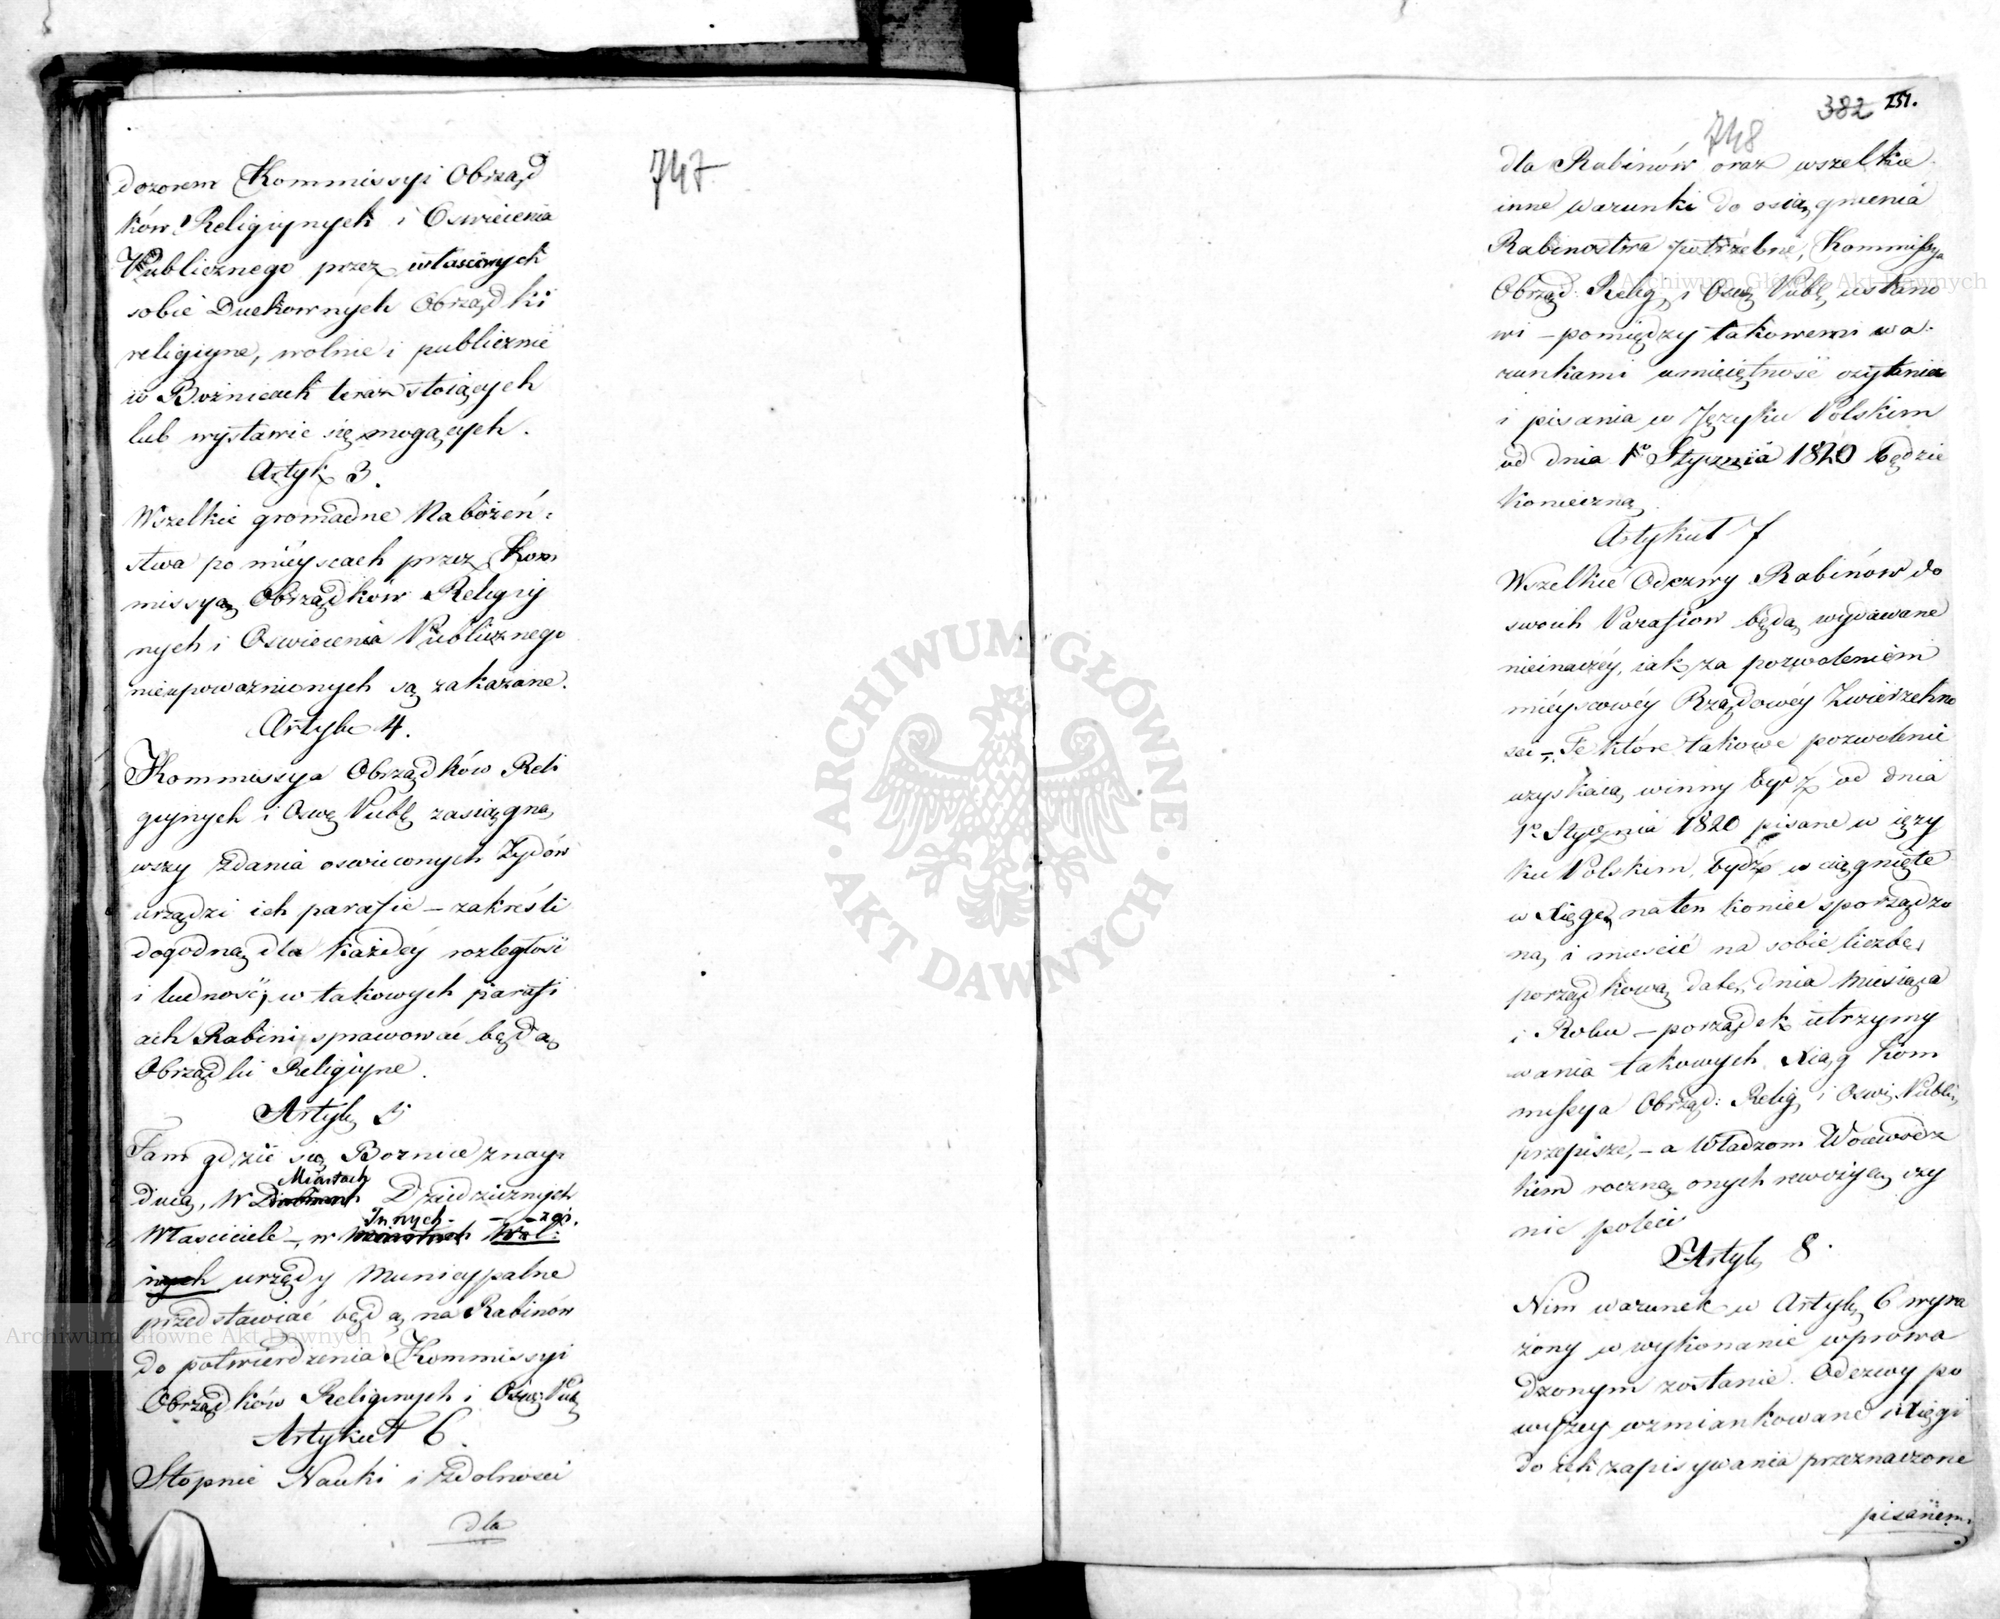 747
dozorem Kommissyi Obrząd
ków Religiynych i Oswiecenia
Publicznego przez własciwych
sobie Duchownych Obrządki
religiyne, wolnie i publicznie
w Boznicach teraz stoiących
lub wystawic się mogących.
Artyk 3.
Wszelkie gromadne Nabożeń:
stwa po mieyscach przez Kom
missyą Obrządków Religiy
nych i Oswiecenia Publicznego
nieupoważnionych są zakazane.
Artyk 4.
Kommissya Obrządków Reli
giynych i Oswę Publę zasiągną
wszy zdania oswieconych Żydów
urządzi ich parafie – zakreśli
dogodną dla każdéy rozległość
i ludność, w takowych parafi
ach Rabini sprawować będą
Obrządki Religiyne.
Artyk 5
Tam gdzie się Boznice znay:
Miastach
duią, w Dziedzicznych
Innych – – zaś.
Własciciele –, w
urzędy Municypalne
przedstawiać będą na Rabinów
do potwierdzenia Kommissyi
Obrządków Religiynych i Oswę Publ
Artykuł 6.
Stopnie Nauki i zdolnosci
dla
382 251.
748
dla Rabinów oraz wszelkie
inne warunki do osiągnienia
Rabinostwa potrzebne, Kommissya
Obrząd: Relig i Oswę Publę ustano
wi – pomiędzy takowemi wa-
runkami umieiętność czytania
i pisania w Języku Polskim
od dnia 1o Stycznia 1820 będzie
konieczną.
Artykuł 7
Wszelkie Odezwy Rabinów do
swoich Parafiow będą wydawane
nieinaczéy, iak za pozwoleniem
miéyscowéy Rządowéy Zwierzchno
sci –, Te które takowe pozwolenie
uzyskaią winny bydź od dnia
1o Stycznia 1820 pisane w ięzy
ku Polskim, bydź wciągnięte
w Xięgę na ten koniec sporządzo
ną i miescić na sobie liczbę
porządkową datę, dnia Miesiąca
i Roku – porządek utrzymy
wania takowych Xiąg Kom
missya Obrząd: Relig i Oswię Publi
przepisze, – a Władzom Woiewodz
kiem roczną onych rewizyią czy
nić poleci
Artyk 8.
Nim warunek w Artyk 6 wyra
żony w wykonanie wprowa
dzonym zostanie. Odezwy po
wyżey wzmiankowane i Xięgi
do ich zapisywania przeznaczone
pisanem.
ARCHIWUM GŁÓWNE AKT DAWNYCH
Archiwum Główne Akt Dawnych
Archiwum Główne Akt Dawnych